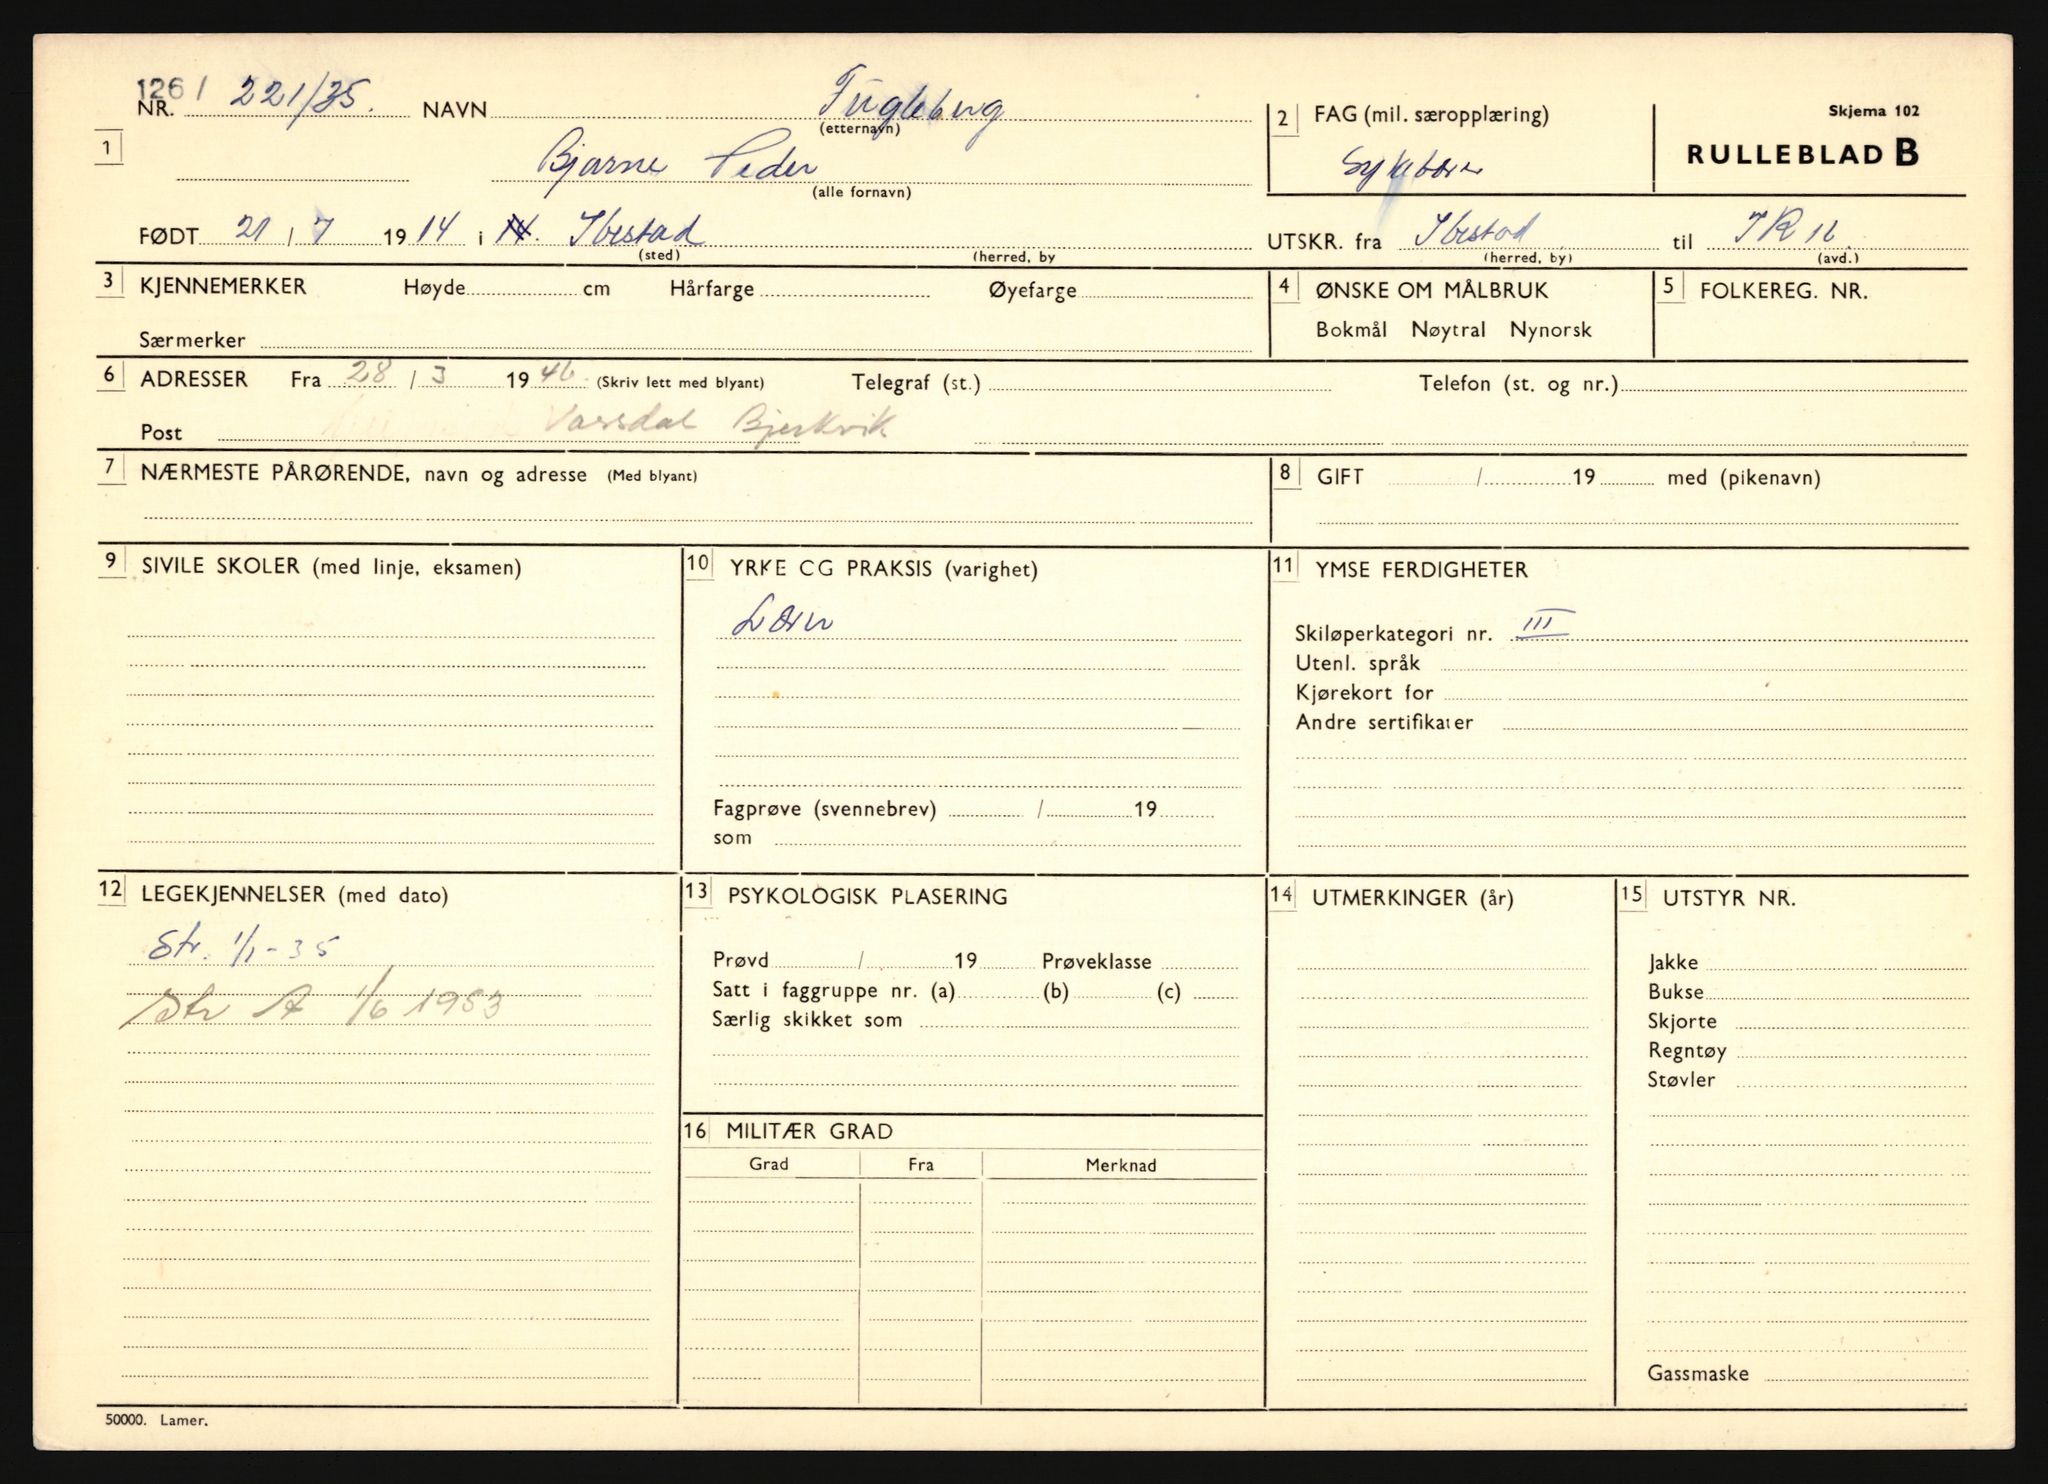 1261
NR. 221/35. NAVN Fugleberg
(etternavn)
1
Bjarne Peder
(alle fornavn)
FØDT 21 / 7 1914 i N. Ibestad
(sted) (herred, by
2 FAG (mil. særopplæring)
Sykebærer
Skjema 102
RULLEBLAD B
UTSKR. fra Ibestad til IR 16.
(herred, by) (avd.)
3 KJENNEMERKER Høyde cm Hårfarge Øyefarge
Særmerker
4 ØNSKE OM MÅLBRUK
Bokmål Nøytral Nynorsk
5 FOLKEREG. NR.
6 ADRESSER Fra 28 / 3 1946. (Skriv lett med blyant) Telegraf (st.) Telefon (st. og nr.)
Post Vassdal Bjerkvik
7 NÆRMESTE PÅRØRENDE, navn og adresse (Med blyant)
8 GIFT / 19 med (pikenavn)
9 SIVILE SKOLER (med linje, eksamen)
10 YRKE CG PRAKSIS (varighet)
Lærer
Fagprøve (svennebrev) / 19
som
11 YMSE FERDIGHETER
Skiløperkategori nr. III
Utenl. språk
Kjørekort for
Andre sertifikater
12 LEGEKJENNELSER (med dato)
Str. 1/1-35
Str A 1/6 1953
13 PSYKOLOGISK PLASERING
Prøvd / 19 Prøveklasse
Satt i faggruppe nr. (a) (b) (c)
Særlig skikket som
14 UTMERKINGER (år)
15 UTSTYR NR.
Jakke
Bukse
Skjorte
Regntøy
Støvler
Gassmaske
16 MILITÆR GRAD
Grad Fra Merknad
50000. Lamer.